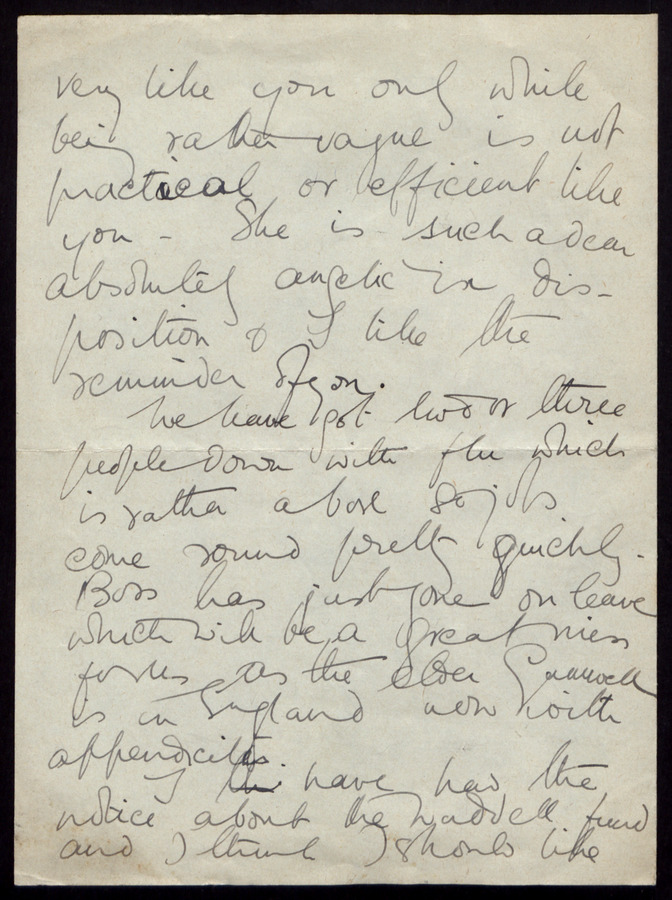 very like you only while
being rather vague is not
practical or efficient like
you - She is such a dear
absolutely angelic in dis-
position & I like the
reminder of you.
We have got two or three
people down with flu which
is rather a bore so jobs
come round pretty quickly.
Boss has just gone on leave
which will be a great
for us as the elder
is in England now with
appendicitis.
I have had the
notice about the Waddell fund
and I think I should like